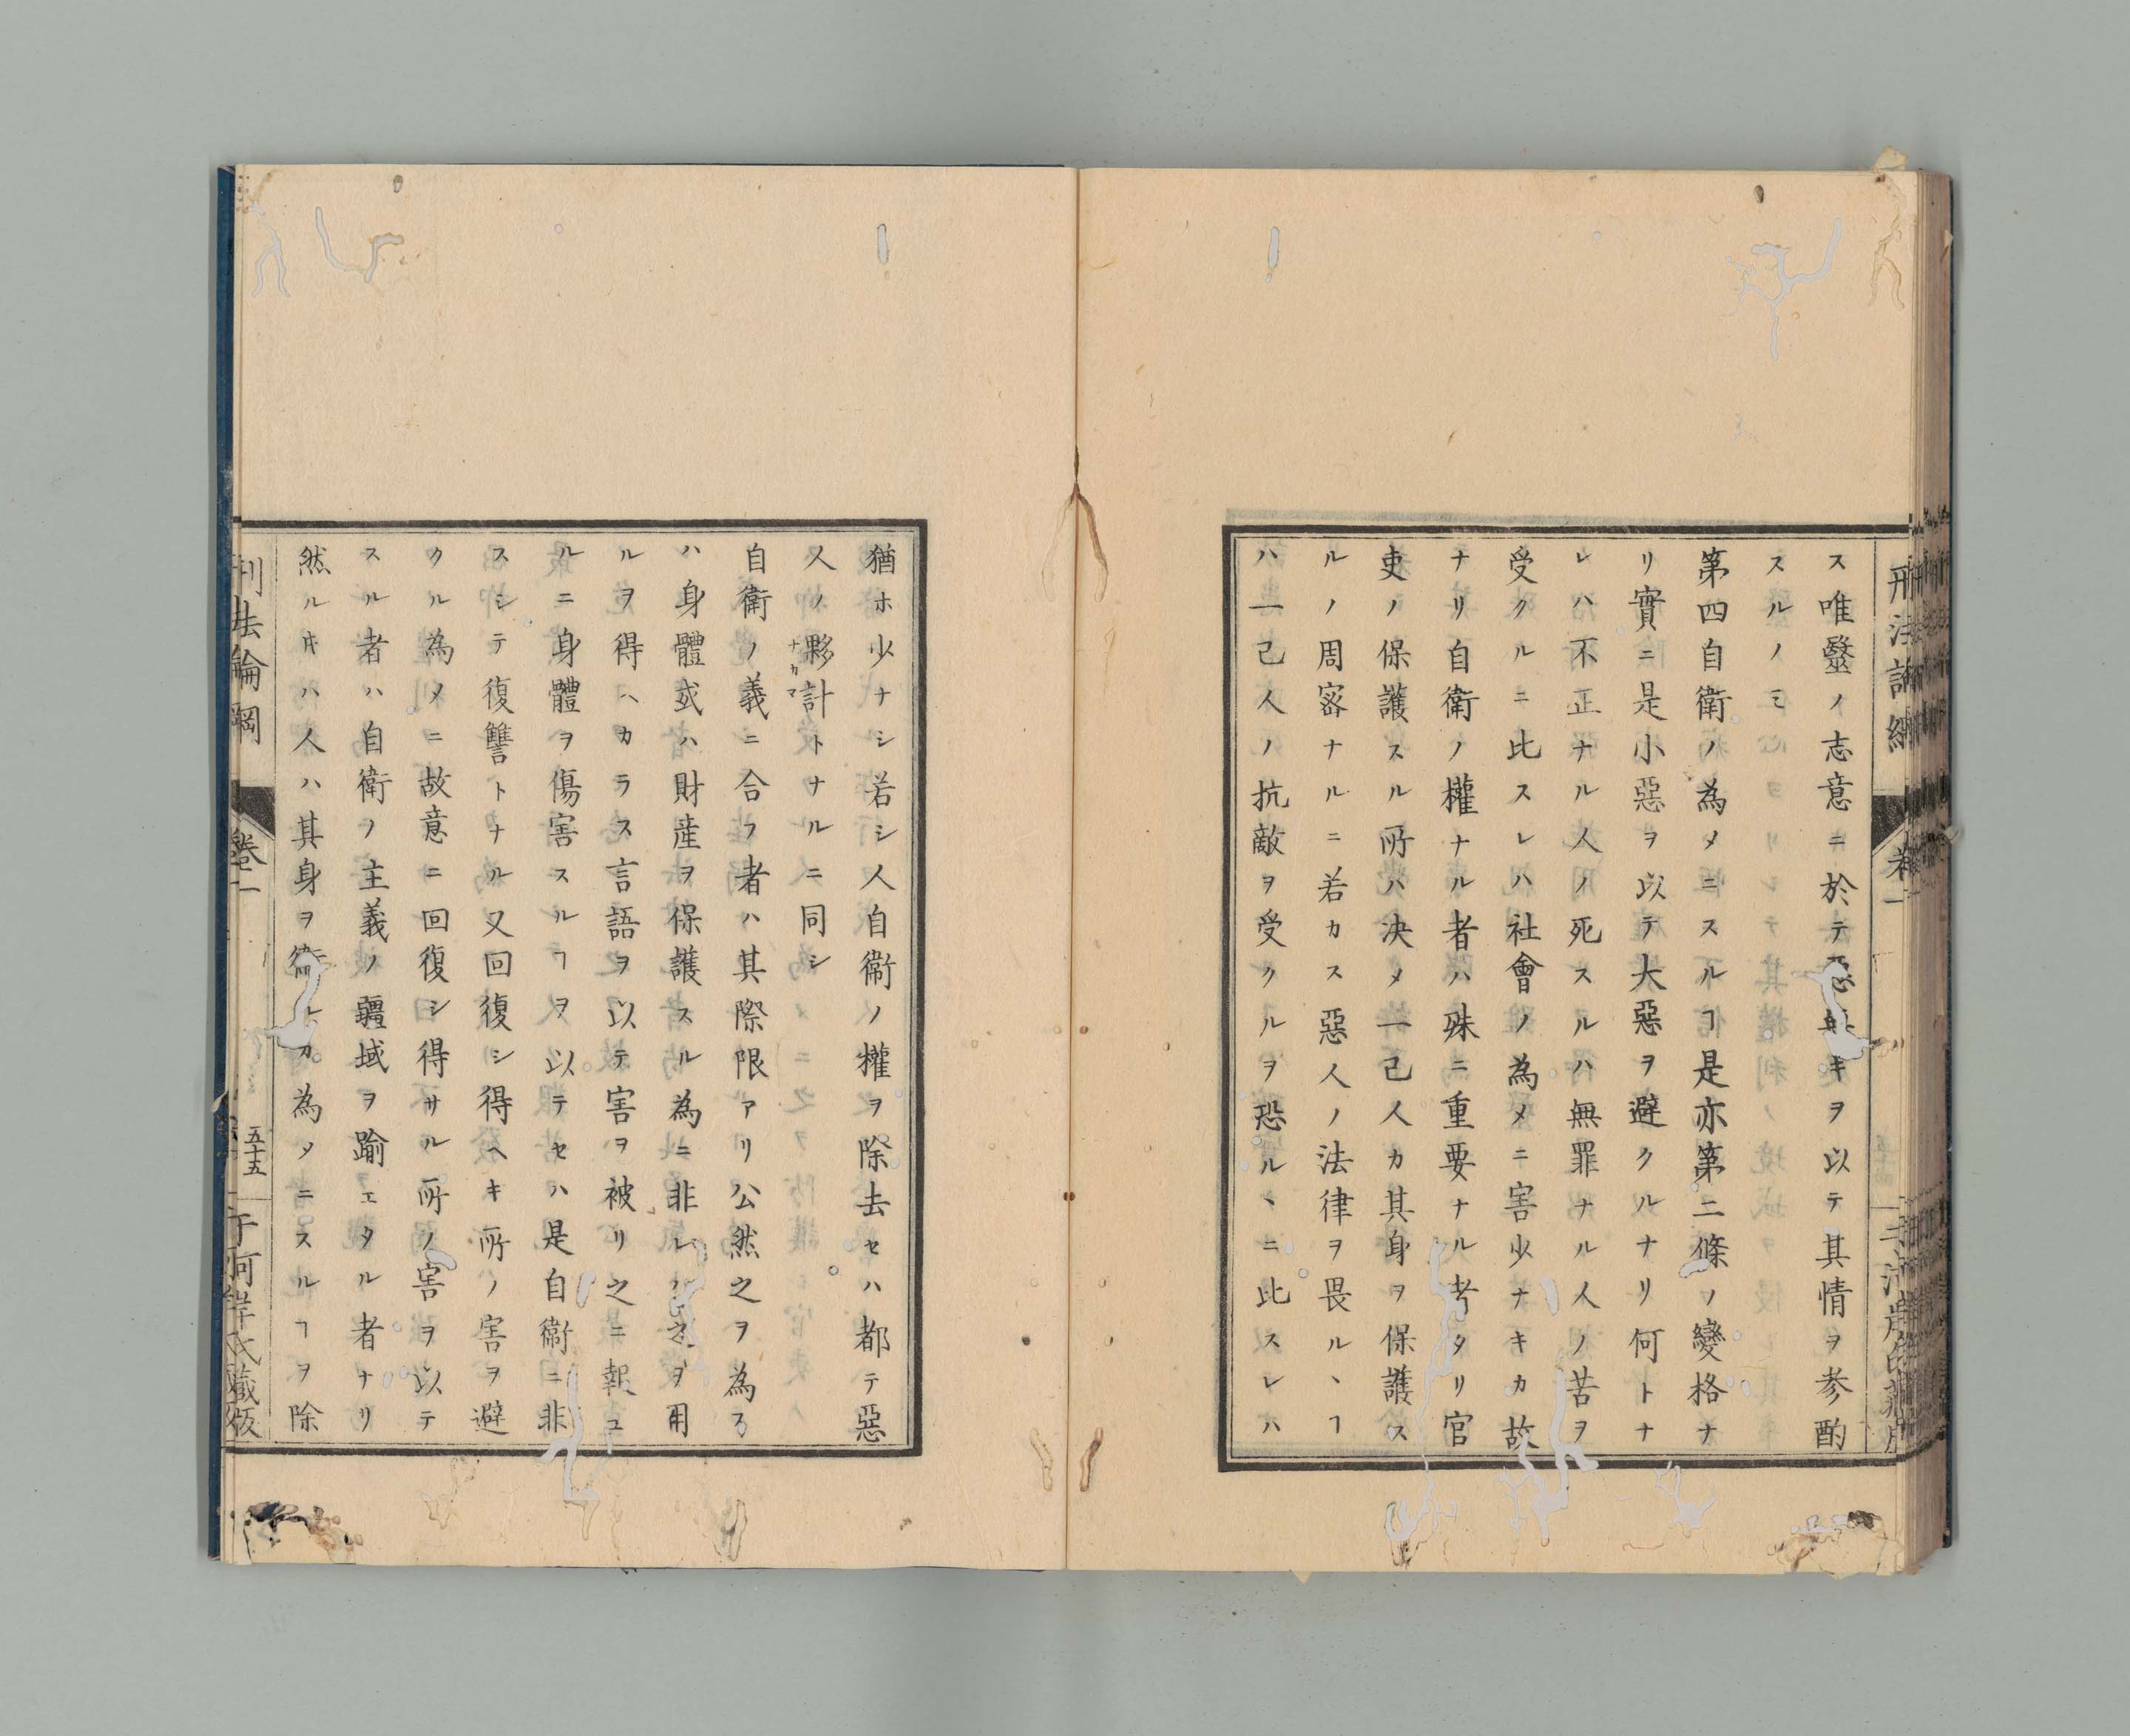 ス唯毉ノ志意ニ於テ惡無キヲ以テ其情ヲ参酌
スルノミ
第四自衛ノ為メニスルヿ是亦第二條ノ變格ナ
リ實ニ是小惡ヲ以テ大惡ヲ避クルナリ何トナ
レハ不正ナル人ノ死スルハ無罪ナル人ノ苦ヲ
受クルニ比スレハ社會ノ為メニ害少ナキカ故
ナリ自衛ノ權ナル者ハ殊ニ重要ナル者タリ官
吏ノ保護スル所ハ决メ一己人カ其身ヲ保護ス
ルノ周密ナルニ若カス惡人ノ法律ヲ畏ルヽヿ
ハ一己人ノ抗敵ヲ受クルヲ恐ルヽニ比スレハ
猶ホ少ナシ若シ人自衞ノ權ヲ除去セハ都テ惡
人ノ夥計トナルニ同シ
ナカマ
自衛ノ義ニ合フ者ハ其際限アリ公然之ヲ為ス
ハ身體或ハ財産ヲ保護スル為ニ非レハ之ヲ用
ルヲ得ヘカラス言語ヲ以テ害ヲ被リ之ニ報ユ
ルニ身體ヲ傷害スルヿヲ以テセハ是自衞ニ非
スシテ復讐トナル又回復シ得ヘキ所ノ害ヲ避
クル為メニ故意ニ回復シ得サル所ノ害ヲ以テ
スル者ハ自衛ノ主義ノ疆域ヲ踰エタル者ナリ
然ルキハ人ハ其身ヲ衛ルカ為メニスルヿヲ除
刑法論綱
卷一
五十五
何岸氏藏版